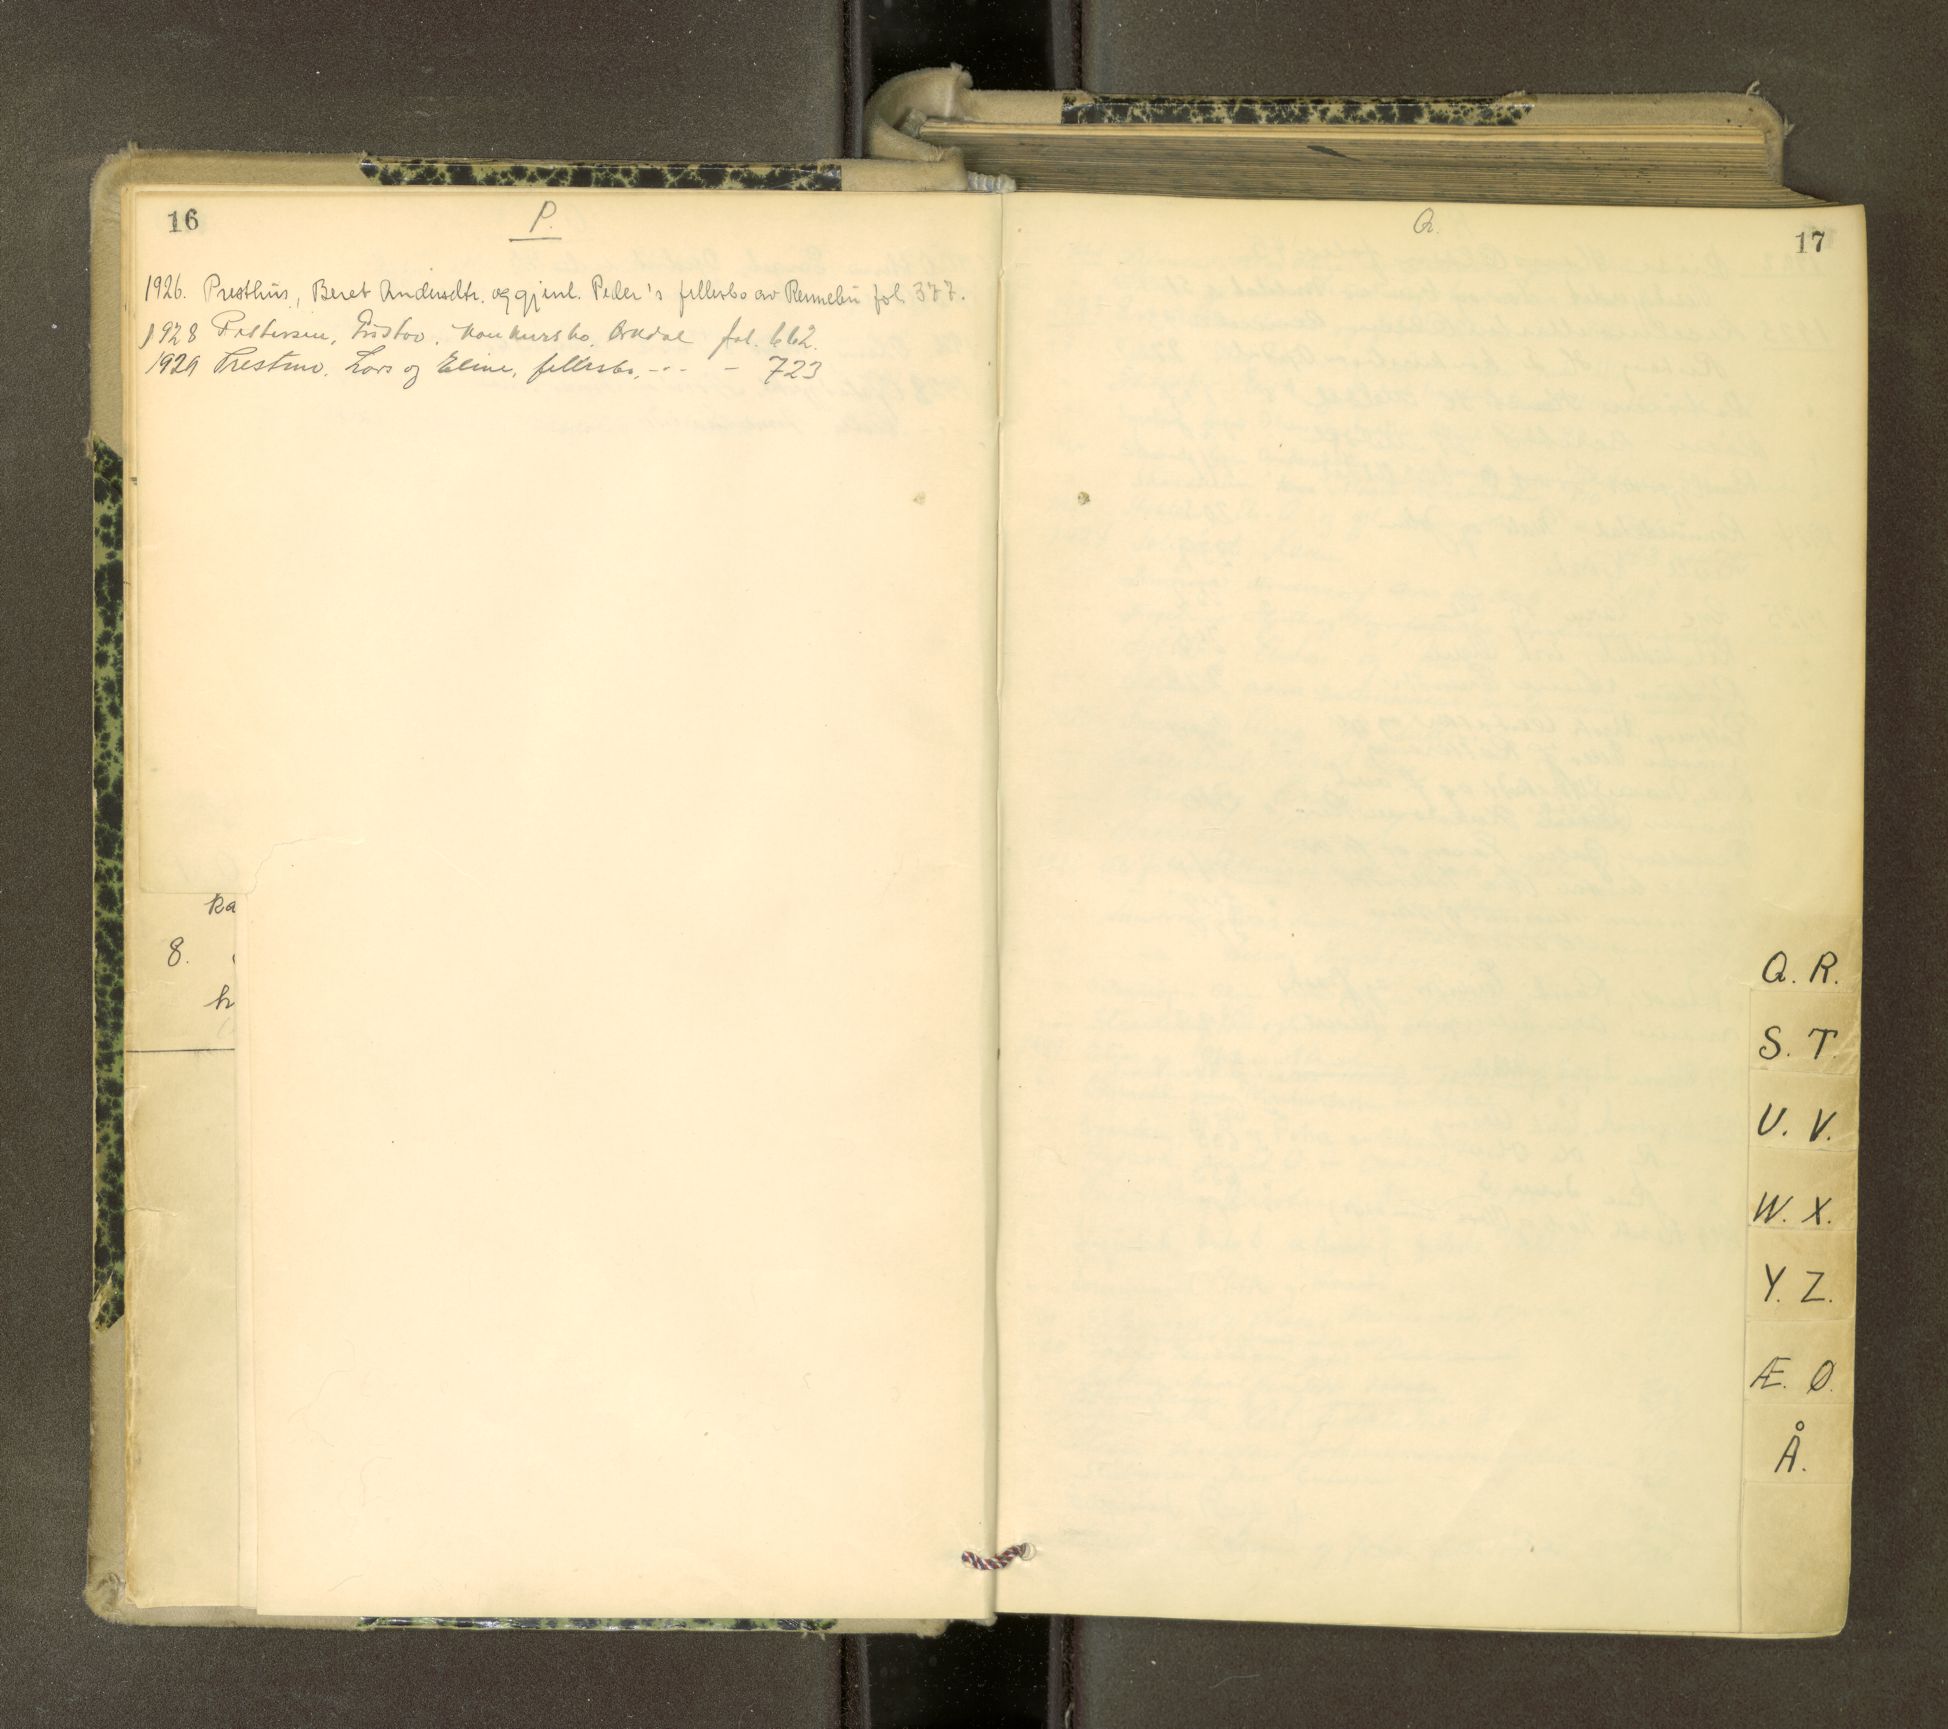 16
P.
1926. Presthus, Beret Andersdtr. og gjenl. Peder's fellesbo av Rennebu fol. 377.
1928 Pettersen, Gustav, konkursbo, Orkdal fol. 662.
1929 Prestmo, Lars og Eline, fellesbo, - - - - 723
ka
8.
h
Q.
17
Q. R.
S. T.
U. V.
W. X.
Y. Z.
Æ. Ø.
Å.